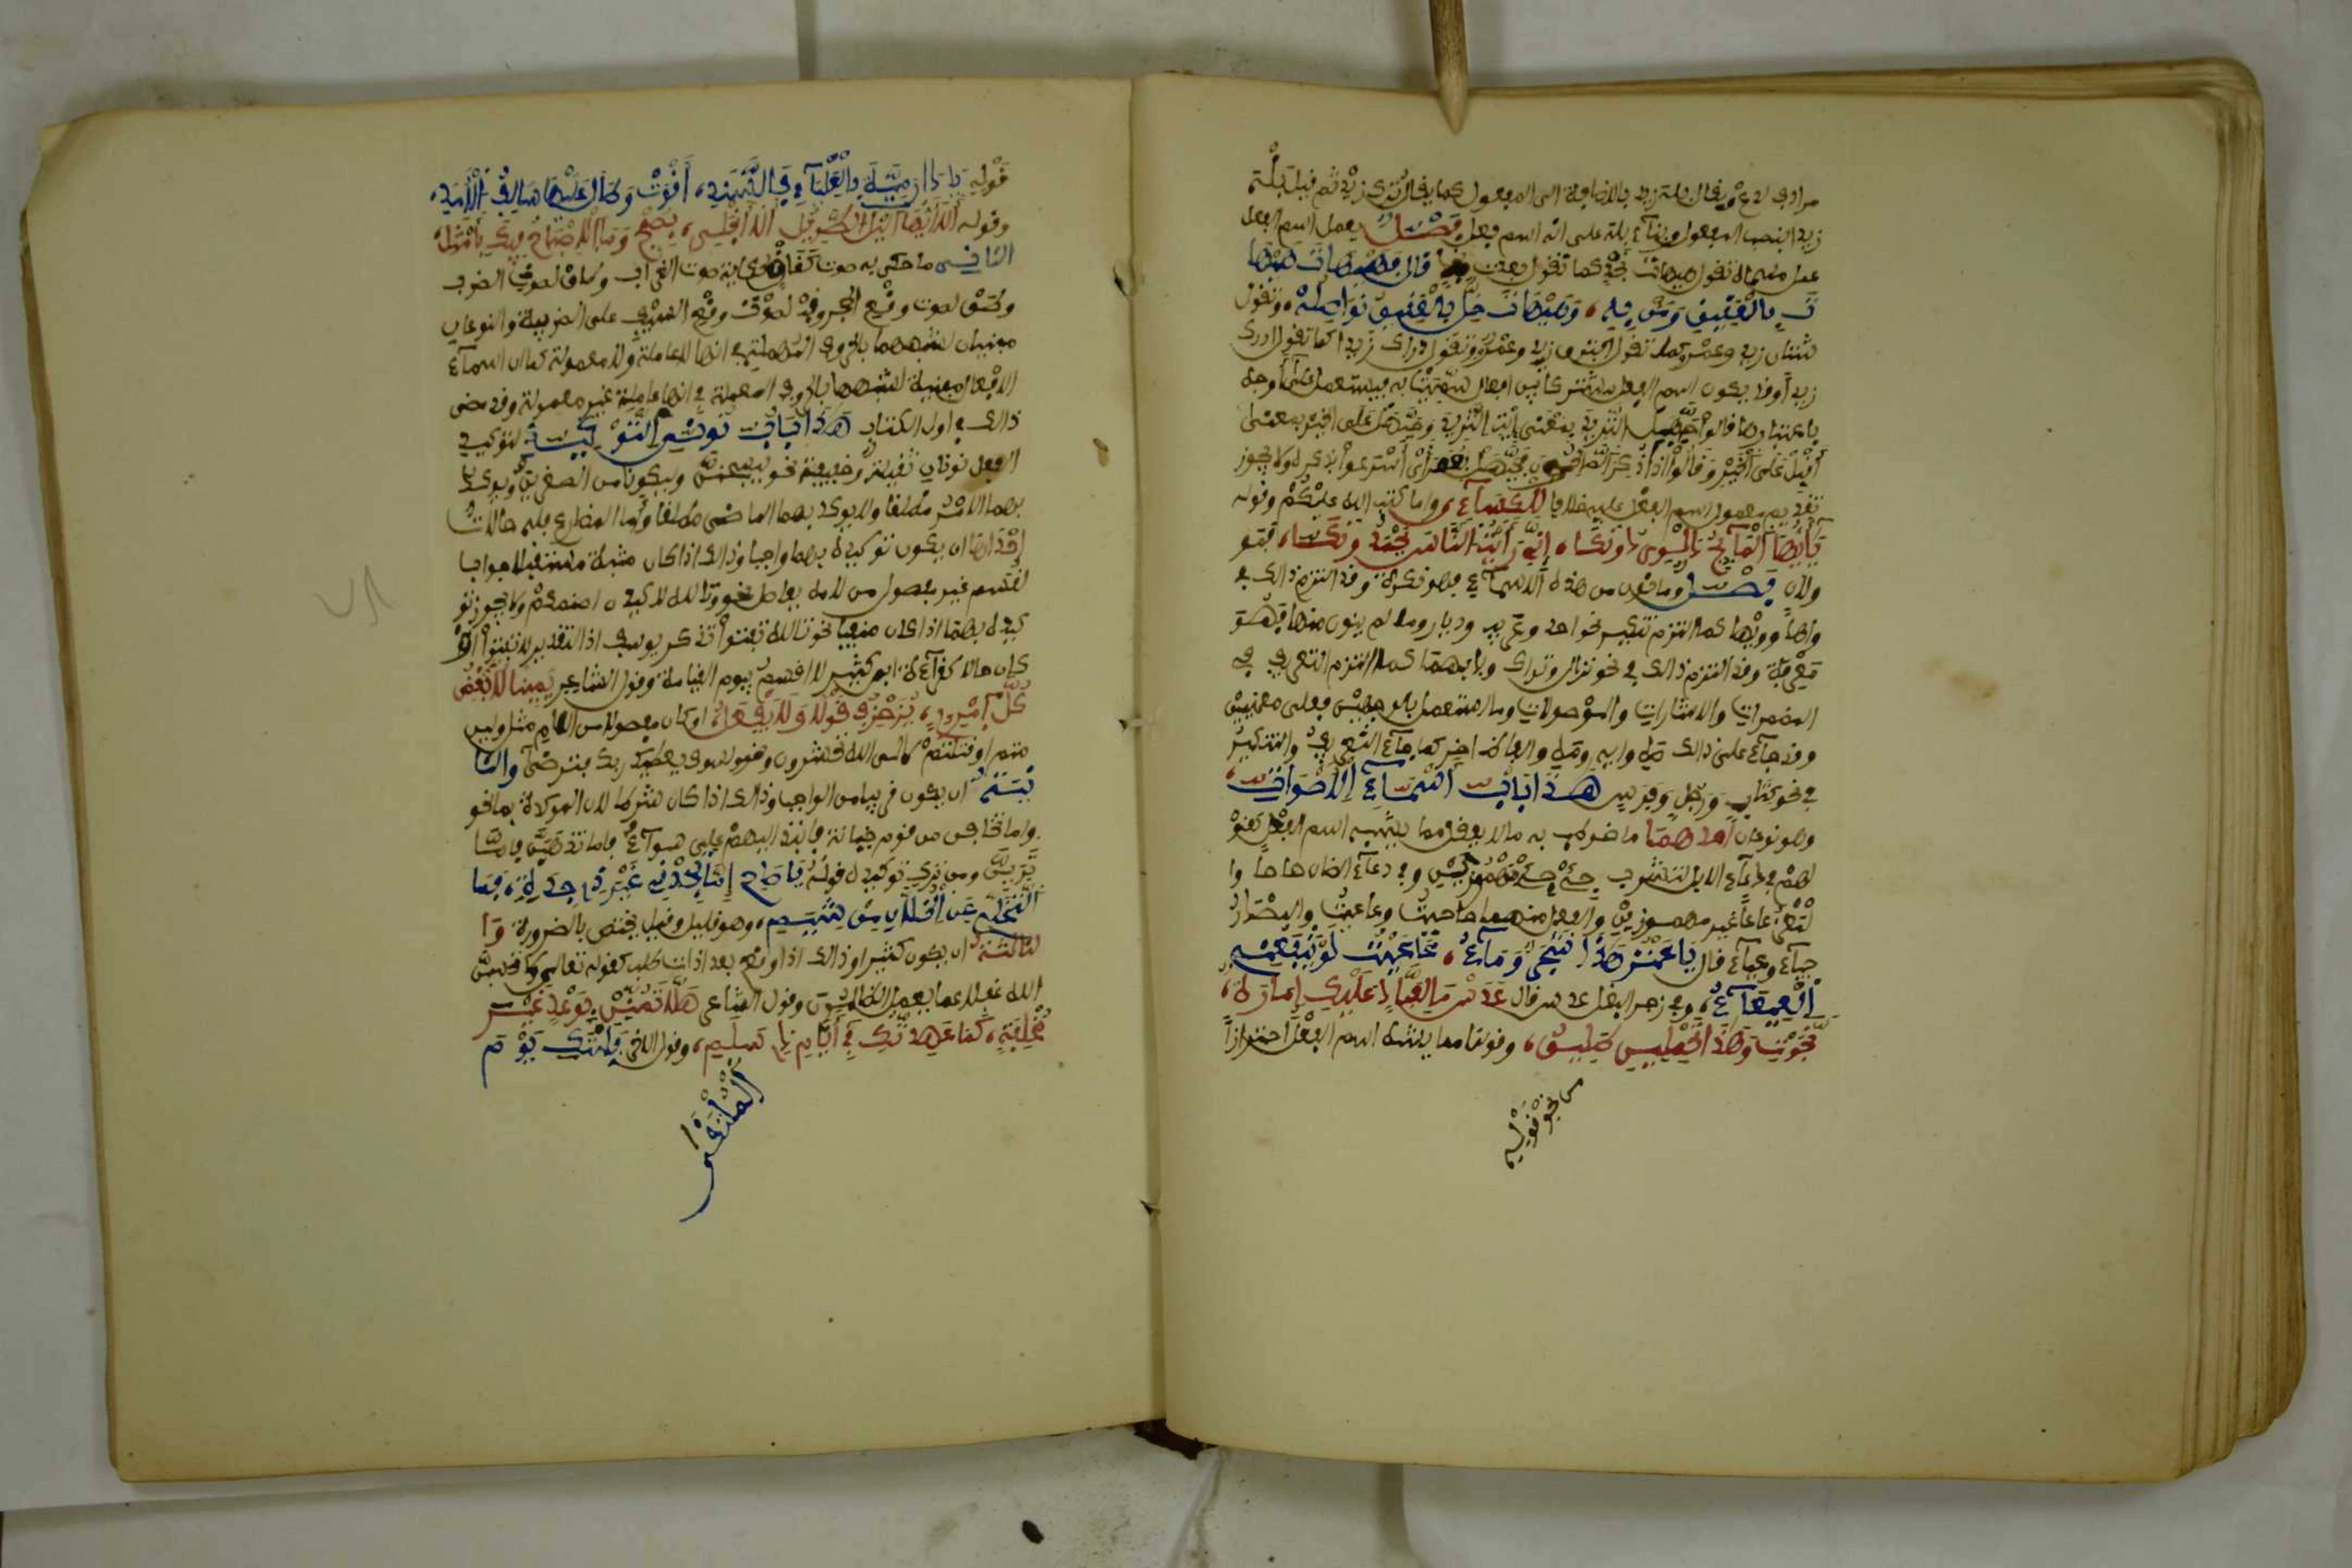 مرادف لدع يقال بله زيد بالاضافة الى المفعول كما يقال ترك زيد ثم قيل بله
زيدا بنصب المفعول وبناء بله على انه اسم فعل فصل يعمل اسم الفعل
عمل مسماه تقول هيهات نجد كما تقول بعدت نجد قال فهيهات هيها
ت العقيق ومن به، وهيهات خل بالعقيق نواصله، وتقول
شتان زيد وعمرو كما تقول افترق زيد وعمرو وتقول دراك زيدا كما تقول ادرك
زيدا وقد يكون اسم الفعل مشتركا بين افعال سميت به فيستعمل على اوجه
باعتبارها قالوا حيهل الثريد بمعنى ايت الثريد وحيهل على الخير بمعنى
أقبل على الخير وقالوا اذا ذكر الصالحون فحيهل بعمر اى أسرعوا بذكره ولا يجوز
تقديم معمول اسم الفعل عليه خلافا للكسآء، واما كتب الله عليكم وقوله
يأيها المآئح دلوى دونكا، إنى رأيت الناس يحمدونكا، فمؤ
ولان فصل وما نون من هذه الاسمآء فهو نكرة وقد التزم ذالك فى
واها وويها كما التزم تنكير نحو احد وعريب وديار وما لم ينون منها فهو
معرفة وقد التزم ذالك فى نحو نزال وتراك وبابهما كما التزم التعريف فى
المضمرات والاشارات والموصولات وما استعمل بالوجهين فعلى معنيين
وقد جآء على ذالك صه وايه ومه والفاظ اخر كما جآء التعريف والتنكير
فى نحو كتاب ورجل وفرس هذا باب أسمآء الأصوات
وهو نوعان احدهما ما خوطب به ما لا يعقل مما يشبه اسم الفعل كقو
لهم فى دعآء الابل لتشرب جئ جئ مهموزين وفى دعآء الضان حاحا وا
لمعز عاعا غير مهموزين والفعل منهما حاحيت وعاعيت والمصدر
حيحآء وعيعآء قال يا عنز هذا شجر ومآء، عاعيت لو ينفعنى
العيعآء، وفى زجر البغل عدس قال عدس ما لعباد عليك إمارة،
نجوت وهذا تحملين طليق، وقولنا مما يشبه اسم الفعل احترازا
من نحو قوله
قوله يا دار مية بالعليآء فالسند، أقوت وطال عليها سالف الأمد،
وقوله ألا أيها الليل الطويل ألا انجلى، بصبح وما الاصباح منك بأمثل،
الثانى ما حكى به صوت كغاق لحكاية صوت الغراب وطاق لصوت الضرب
وطق لصوت وقع الحجر وقب لصوت وقع السيف على الضريبة والنوعان
مبنيان لشبههما بالحروف المهملة فى انها لا عاملة ولا معمولة كما ان اسمآء
الافعال مبنية لشبهها بالحروف المعملة فى انها عاملة غير معمولة وقد مضى
ذالك فى اول الكتاب هذا باب نونى التوكيد لتوكيد
الفعل نونان ثقيلة وخفيفة نحو ليسجنن وليكونا من الصغرين ويوكد
بهما الامر مطلقا ولا يوكد بهما الماضى مطلقا واما المضارع فله حالات
إحداها ان يكون توكيده بهما واجبا وذالك اذا كان مثبتا مستقبلا جوابا
لقسم غير مفصول من لامه بفاصل نحو وتالله لاكيدن اصنمكم ولا يجوز تو
كيده بهما اذا كان منفيا نحو تالله تفتؤا تذكر يوسف اذ التقدير لا تفتؤا او
كان حالا كقرآءة ابن كثير لا قسم بيوم القيامة وقول الشاعر يمينا لأبغض
كل امرىء، يزخرف قولا ولا يفعل، او كان مفصولا من اللام مثل ولين
متم او قتلتم لالى الله تحشرون ونحو ولسوف يعطيك ربك فترضى والثا
نية ان يكون قريبا من الواجب وذالك اذا كان شرطا لان الموكدة بما نحو
واما تخافن من قوم خيانة فانبذ اليهم على سوآء فاما نذهبن فاما
ترين ومن ترك توكيده قوله يا صاح إما تجدنى غير ذى جدة، فما
التخلى عن الخلان من شيمى، وهو قليل وقيل يختص بالضرورة وا
لثالثة ان يكون كثيرا وذالك اذا وقع بعد اداة طلب كقوله تعالى ولا تحسبن
الله غفلا عما يعمل الظلمون وقول الشاعر هلا تمنن بوعد غير
مخلفة، كما عهدتك فى أيام ذى سلم، وقول الاخر فليتك يوم
الملتقى